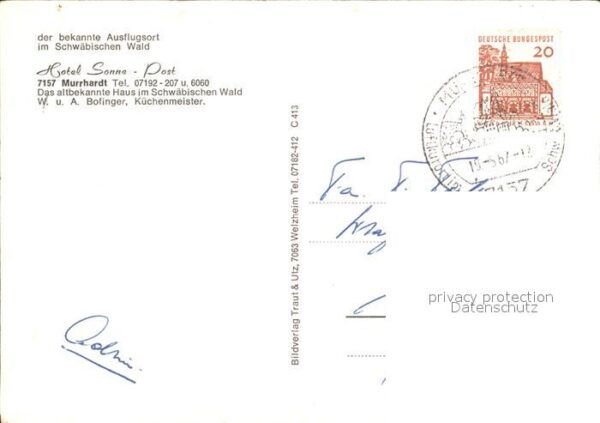 der bekannte Ausflugsort
im Schwäbischen Wald
Hotel Sonne - Post
7157 Murrhardt Tel. 07192 - 207 u. 6060
Das altbekannte Haus im Schwäbischen Wald
W. u. A. Bofinger, Küchenmeister.
Bildverlag Traut & Utz, 7063 Welzheim Tel. 07182-412 C 413
DEUTSCHE BUNDESPOST
20
7157
Fa.
privacy protection
Datenschutz